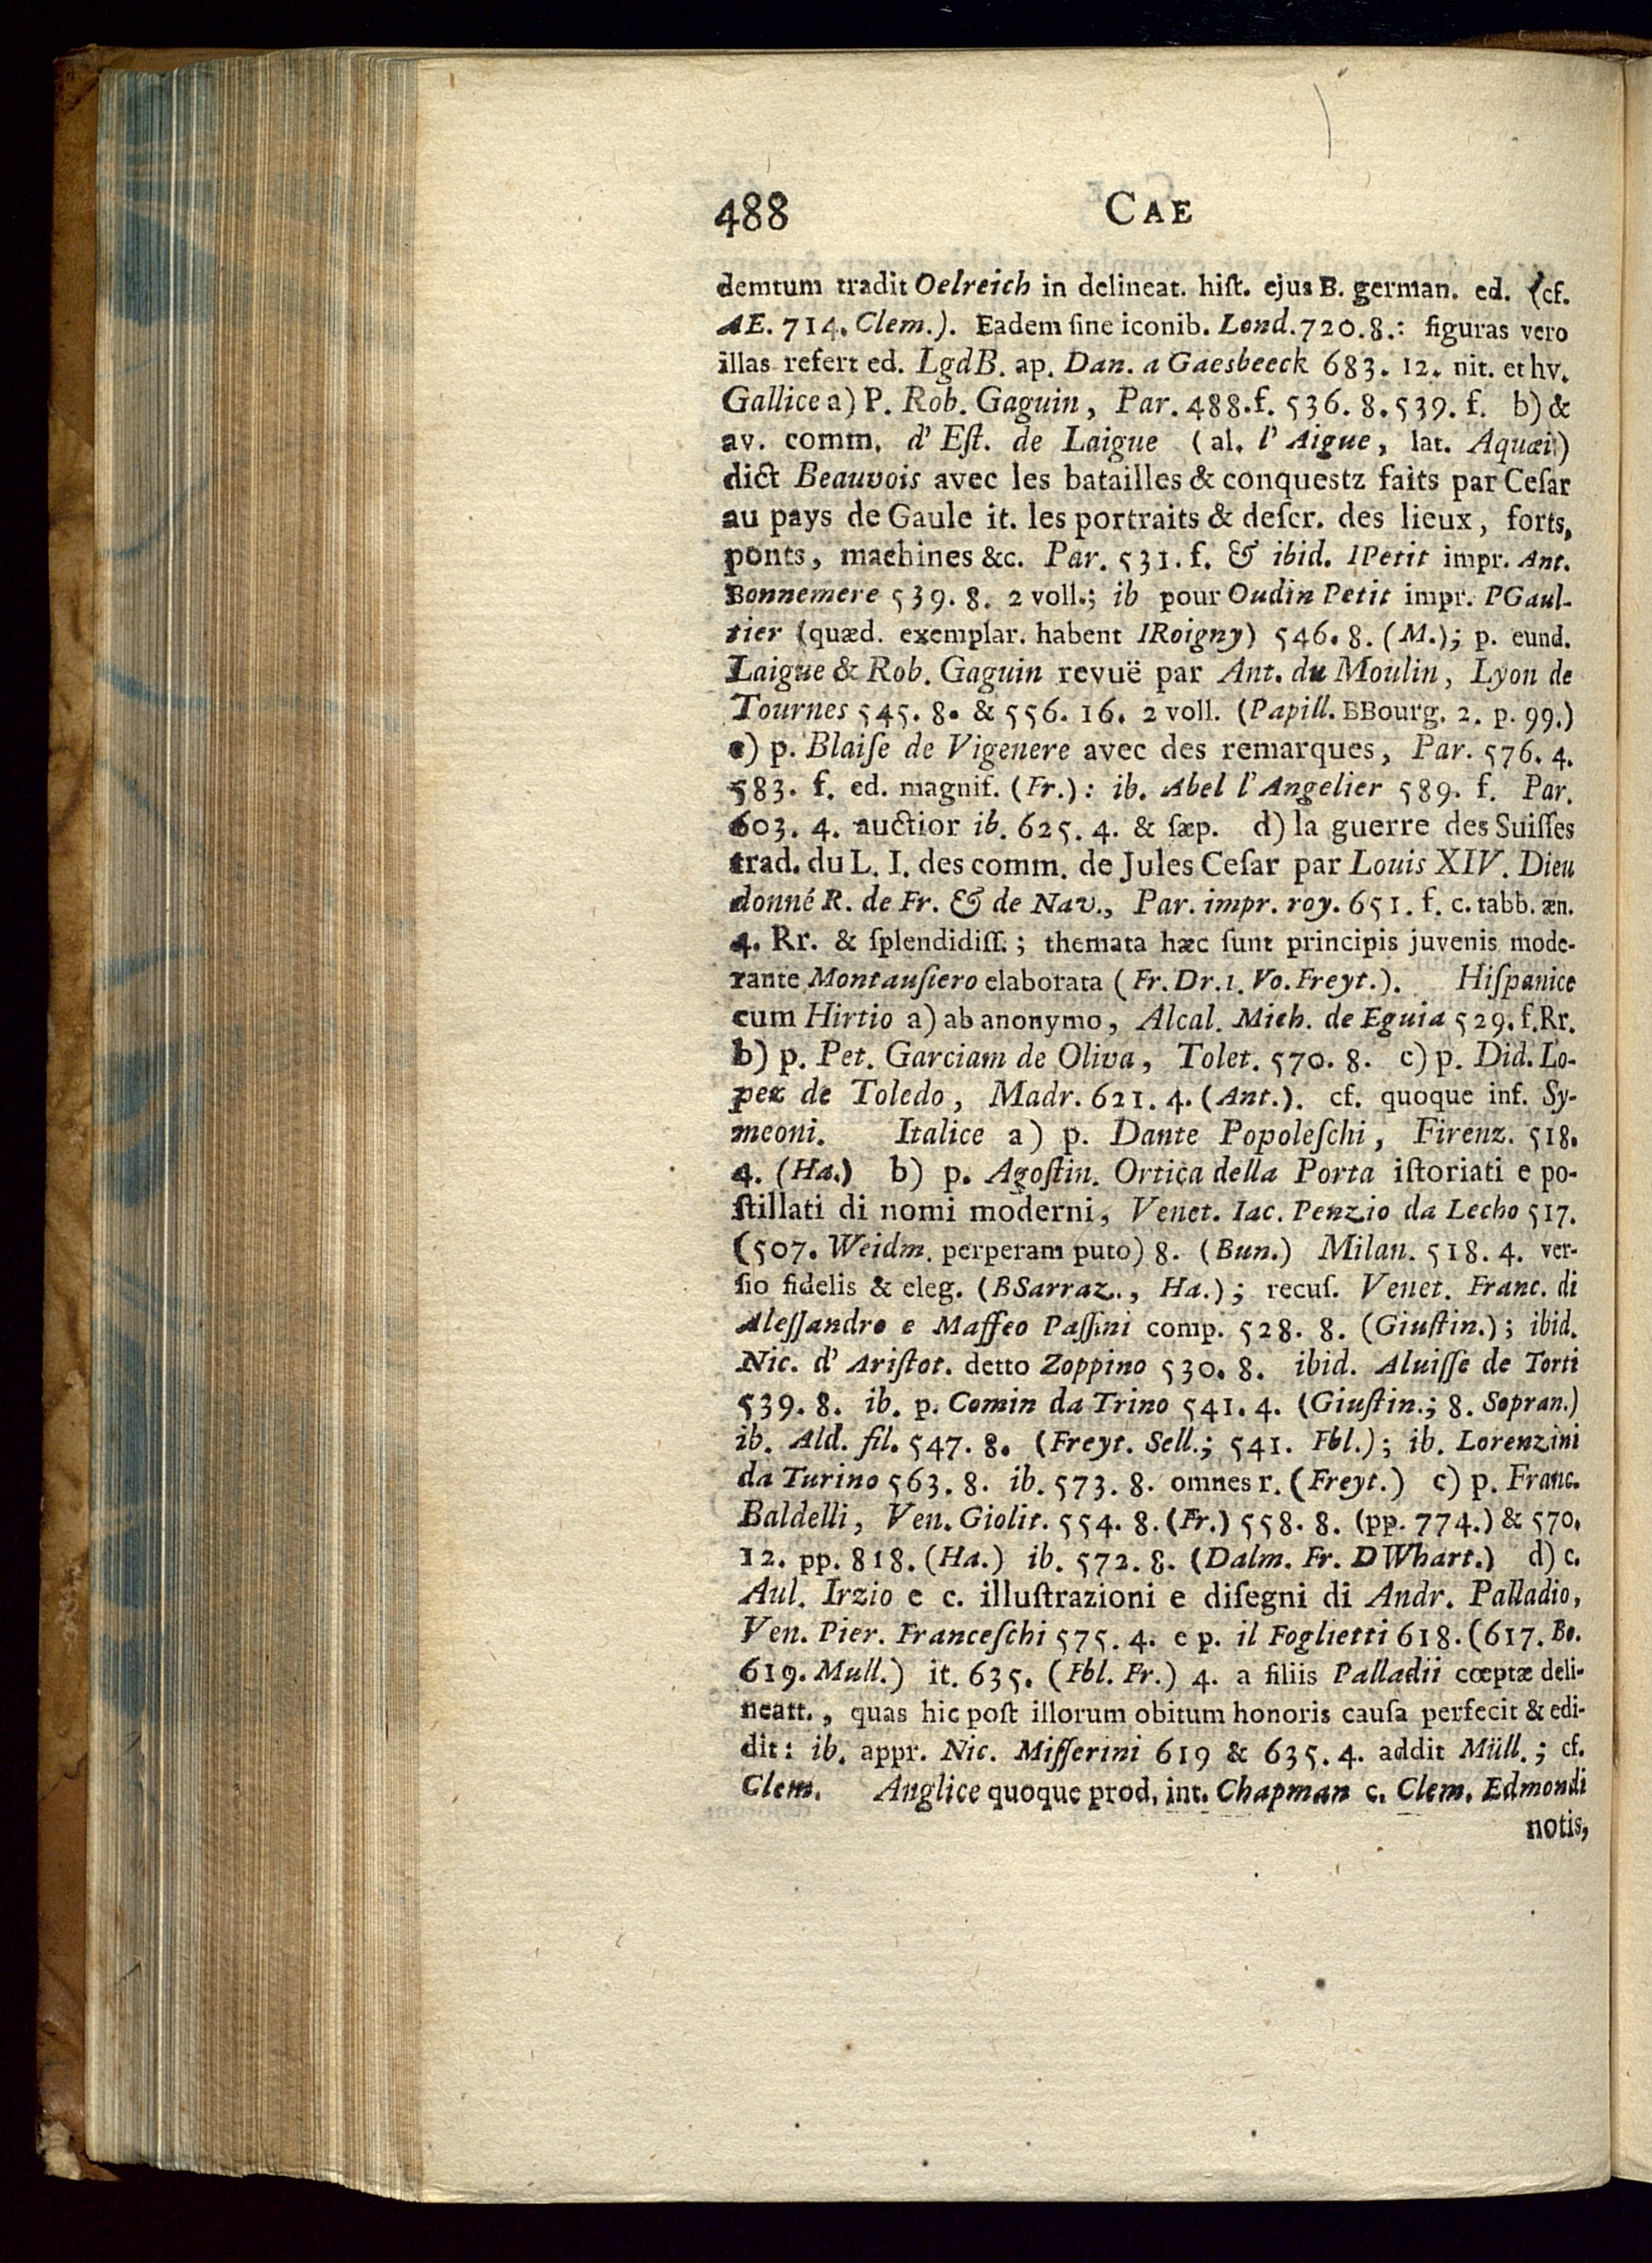 488 CAE
demtum tradit Oelreich in delineat. hiſt. ejus B. german. ed. (cf.
AE. 714. Clem.). Eadem ſine iconib. Lond. 720. 8.: figuras vero
illas refert ed. LgdB. ap. Dan. a Gaesbeeck 683. 12. nit. et hv.
Gallice a) P. Rob. Gaguin, Par. 488. f. 536. 8. 539. f. b) &
av. comm. d' Eſt. de Laigue (al. l' Aigue, lat. Aquæi)
dict Beauvois avec les batailles & conquestz faits par Ceſar
au pays de Gaule it. les portraits & deſcr. des lieux, forts,
ponts, machines &c. Par. 531. f. & ibid. IPetit impr. Ant.
Bonnemere 539. 8. 2 voll.; ib pour Oudin Petit impr. PGaul-
tier (quæd. exemplar. habent IRoigny) 546. 8. (M.); p. eund.
Laigue & Rob. Gaguin revuë par Ant. du Moulin, Lyon de
Tournes 545. 8. & 556. 16. 2 voll. (Papill. BBourg. 2. p. 99.)
c) p. Blaiſe de Vigenere avec des remarques, Par. 576. 4.
583. f. ed. magnif. (Fr.): ib. Abel l'Angelier 589. f. Par.
603. 4. auctior ib. 625. 4. & ſæp. d) la guerre des Suiſſes
trad. du L. I. des comm. de Jules Ceſar par Louis XIV. Dieu
donné R. de Fr. & de Nav., Par. impr. roy. 651. f. c. tabb. æn.
4. Rr. & ſplendidiſſ.; themata hæc ſunt principis juvenis mode-
rante Montauſiero elaborata (Fr. Dr. 1. Vo. Freyt.). Hiſpanice
cum Hirtio a) ab anonymo, Alcal. Mich. de Eguia 529. f. Rr.
b) p. Pet. Garciam de Oliva, Tolet. 570. 8. c) p. Did. Lo-
pez de Toledo, Madr. 621. 4. (Ant.). cf. quoque inf. Sy-
meoni. Italice a) p. Dante Popoleſchi, Firenz. 518.
4. (Ha.) b) p. Agoſtin. Ortica della Porta iſtoriati e po-
ſtillati di nomi moderni, Venet. Iac. Penzio da Lecho 517.
(507. Weidm. perperam puto) 8. (Bun.) Milan. 518. 4. ver-
ſio fidelis & eleg. (BSarraz., Ha.); recuſ. Venet. Franc. di
Aleſſandro e Maffeo Paſſini comp. 528. 8. (Giuſtin.); ibid.
Nic. d' Ariſtot. detto Zoppino 530. 8. ibid. Aluiſſe de Torti
539. 8. ib. p. Comin da Trino 541. 4. (Giuſtin.; 8. Sopran.)
ib. Ald. fil. 547. 8. (Freyt. Sell.; 541. Fbl.); ib. Lorenzini
da Turino 563. 8. ib. 573. 8. omnes r. (Freyt.) c) p. Franc.
Baldelli, Ven. Giolit. 554. 8. (Fr.) 558. 8. (pp. 774.) & 570.
12. pp. 818. (Ha.) ib. 572. 8. (Dalm. Fr. DWhart.) d) c.
Aul. Irzio e c. illuſtrazioni e diſegni di Andr. Palladio,
Ven. Pier. Franceſchi 575. 4. e p. il Foglietti 618. (617. Bo.
619. Mull.) it. 635. (Fbl. Fr.) 4. a filiis Palladii cœptæ deli-
neatt., quas hic poſt illorum obitum honoris cauſa perfecit & edi-
dit: ib. appr. Nic. Miſſerini 619 & 635. 4. addit Müll.; cf.
Clem. Anglice quoque prod. int. Chapman c. Clem. Edmondi
notis,